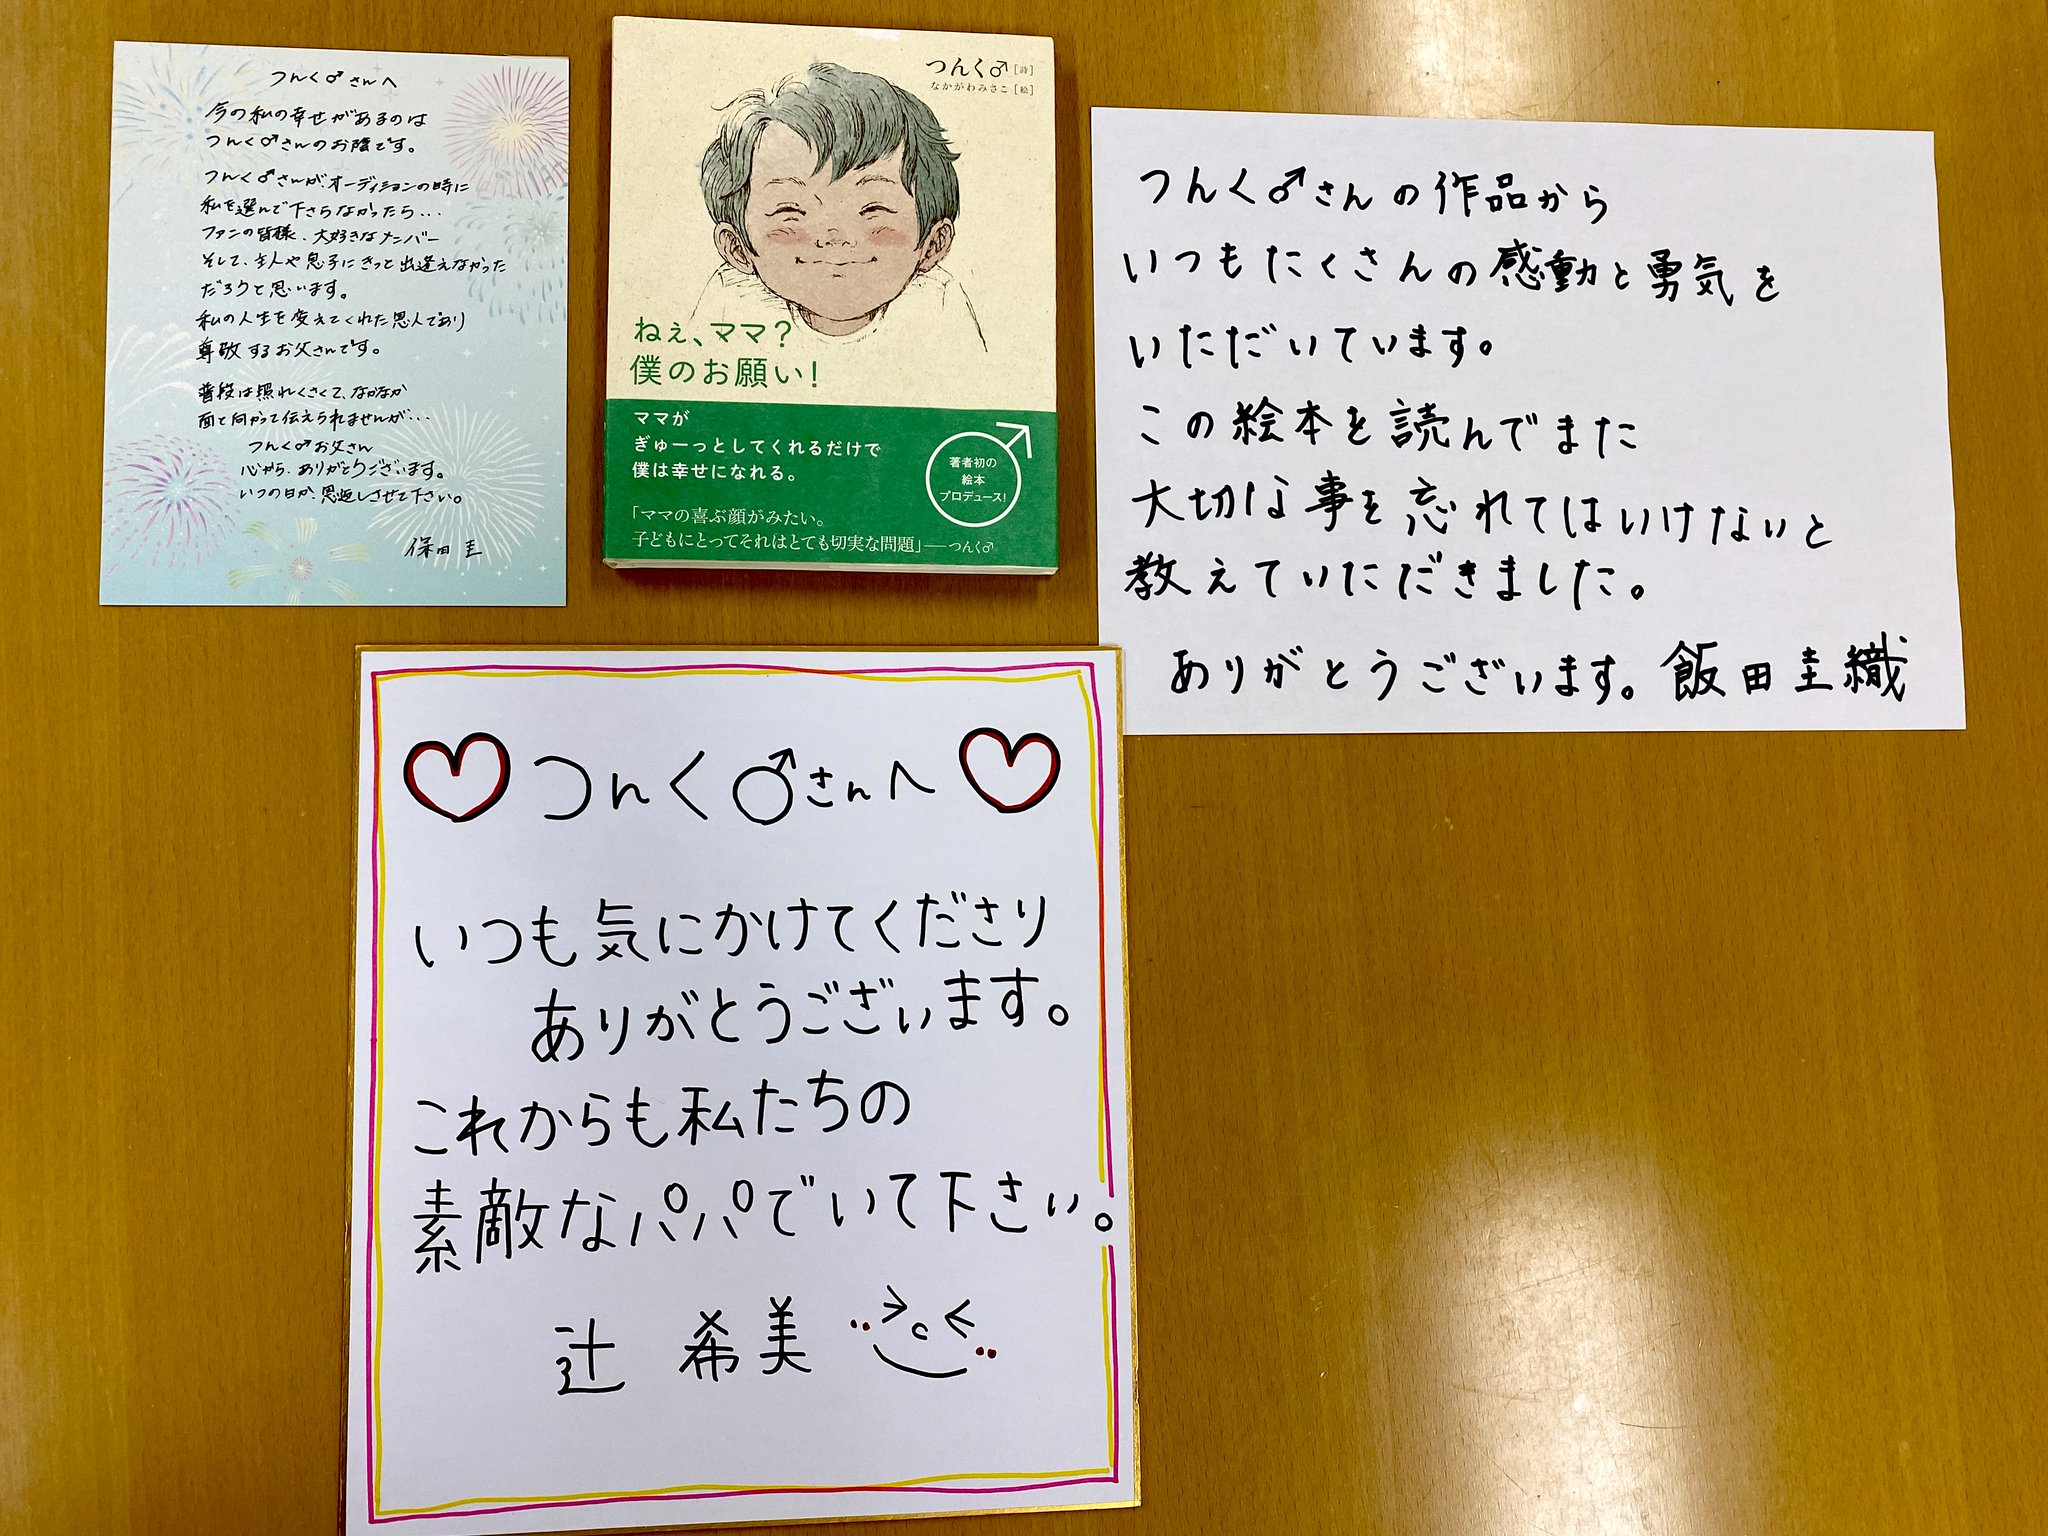 つんく♂さんへ
今の私の幸せがあるのは
つんく♂さんのお陰です。
つんく♂さんが、オーディションの時に
私を選んで下さらなかったら…
ファンの皆様、大好きなメンバー
そして、主人や息子にきっと出逢えなかった
だろうと思います。
私の人生を変えてくれた恩人であり
尊敬するお父さんです。
普段は照れくさくて、なかなか
面と向かって伝えられませんが…
つんく♂お父さん
心から、ありがとうございます。
いつの日か、恩返しさせて下さい。
保田 圭
つんく♂[詩]
なかがわみさこ[絵]
ねぇ、ママ?
僕のお願い!
ママが
ぎゅーっとしてくれるだけで
僕は幸せになれる。
著者初の
絵本
プロデュース!
「ママの喜ぶ顔がみたい。
子どもにとってそれはとても切実な問題」――つんく♂
つんく♂さんの作品から
いつもたくさんの感動と勇気を
いただいています。
この絵本を読んでまた
大切な事を忘れてはいけないと
教えていただきました。
ありがとうございます。飯田圭織
つんく♂さんへ
いつも気にかけてくださり
ありがとうございます。
これからも私たちの
素敵なパパでいて下さい。
辻 希美